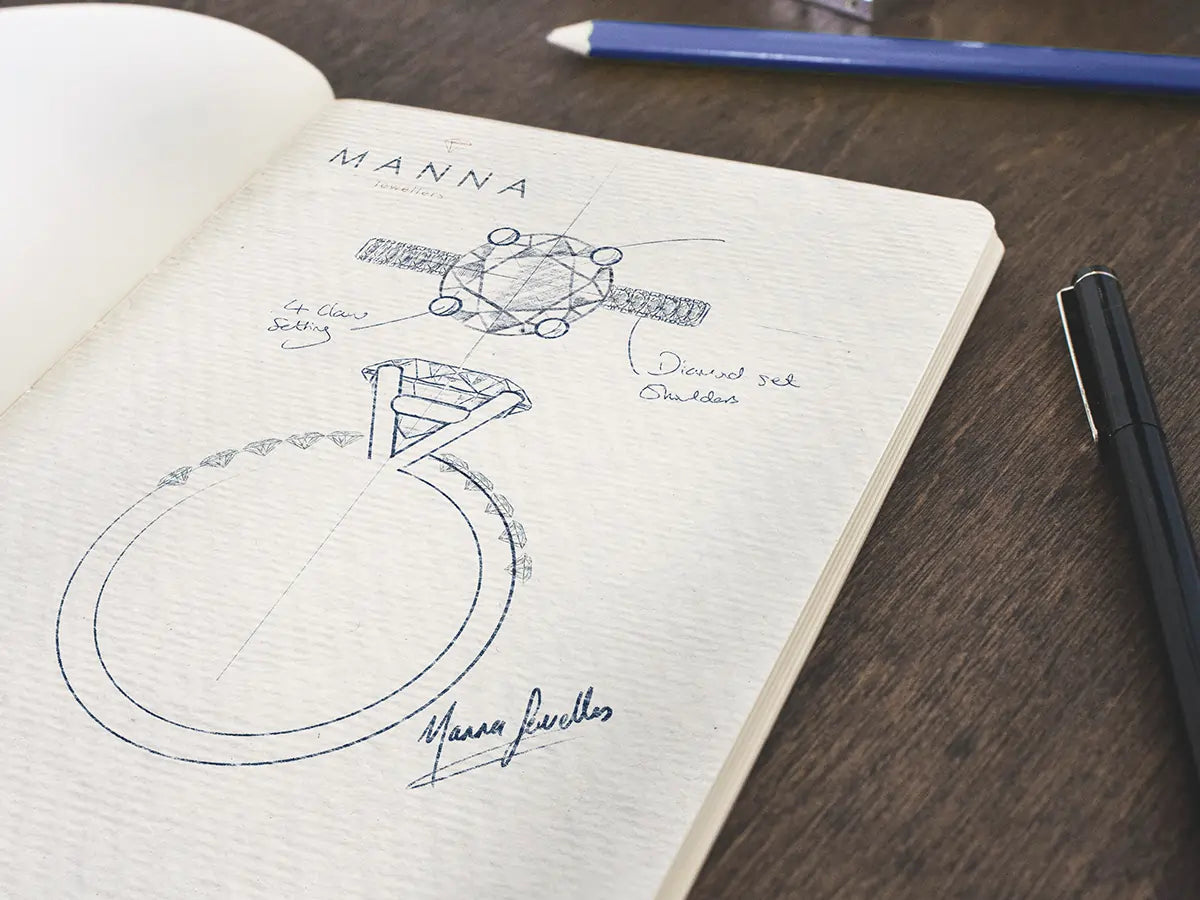 MANNA
Jewellers
4 Claw
Setting
Diamond set
Shoulders
Manna Jewellers